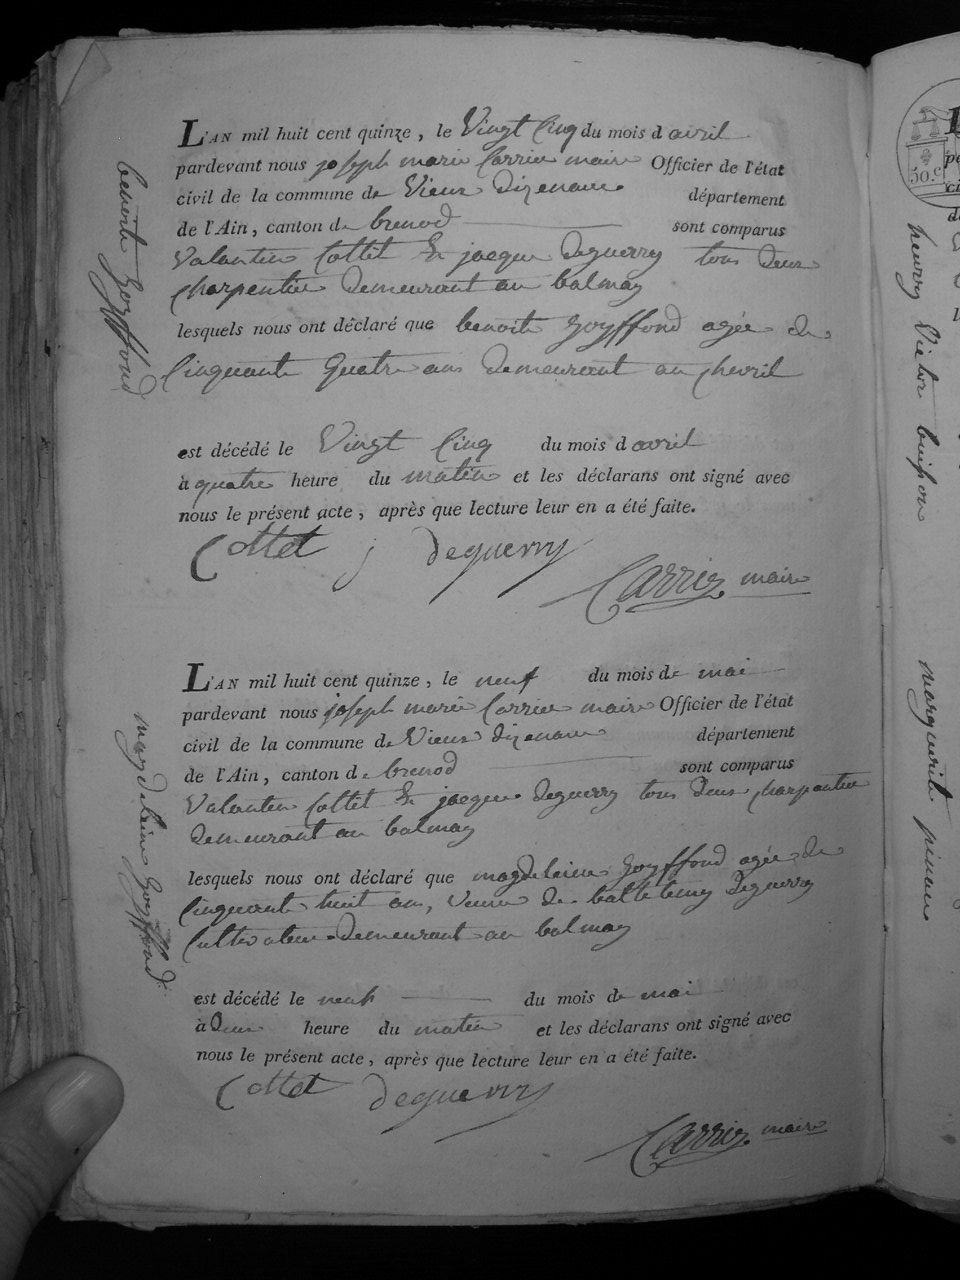 L'AN mil huit cent quinze, le Vingt Cinq du mois d avril
pardevant nous joseph marie Carrier maire Officier de l'état
civil de la commune de Vieux dizenave département
de l'Ain, canton de brenod sont comparus
Valantin Cottet Et jacque Deguerry tous deux
charpentier Demeurant au balmay
lesquels nous ont déclaré que benoite Goyffond agée de
Cinquante Quatre ans Demeurant au chevril
est décédé le Vingt Cinq du mois d avril
à quatre heure du matin et les déclarans ont signé avec
nous le présent acte, après que lecture leur en a été faite.
Cottet j Deguerry
Carrier maire
benoite Goyffond
L'AN mil huit cent quinze, le neuf du mois de mai
pardevant nous joseph marie Carrier maire Officier de l'état
civil de la commune de Vieux dizenave département
de l'Ain, canton de brenod sont comparus
Valantin Cottet Et jacque Deguerry tous deux charpentier
Demeurant au balmay
lesquels nous ont déclaré que magdelaine Goyffond agée de
Cinquante huit ans, veuve de Deguerry
Cultivateur Demeurant au balmay
est décédé le neuf du mois de mai
à Deux heure du matin et les déclarans ont signé avec
nous le présent acte, après que lecture leur en a été faite.
Cottet Deguerry
Carrier maire
magdelaine Goyffond
henry Victor buisson
marguerite
50.c